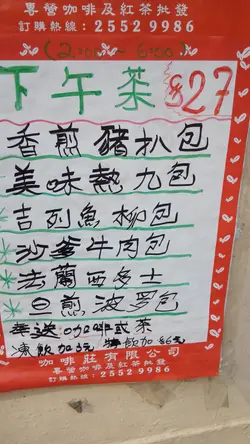 專營咖啡及紅茶批發
訂購熱線：2552 9986
(2:00 - 6:00)
下午茶 $27
香煎豬扒包
美味熱九包
吉列魚柳包
沙爹牛肉包
法蘭西多士
旦煎波罗包
送咖啡或茶
凍飲加3元 特飲加$6元
咖啡莊有限公司
專營咖啡及紅茶批發
訂購熱線：2552 9986